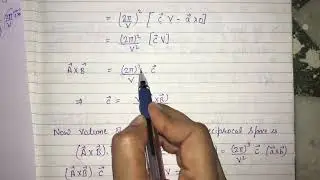 = (2π/V)² [ c⃗ V - a⃗ x0 ]
= (2π)²/V² [c⃗ V]
A⃗ x B⃗ = (2π)²/V c⃗
⇒ c⃗ = V x B⃗)
Now volume reciprocal space is
(A⃗ x B⃗). = (2π)²/V² c⃗ . (a⃗ x b⃗)
(A⃗ x B⃗) . C⃗